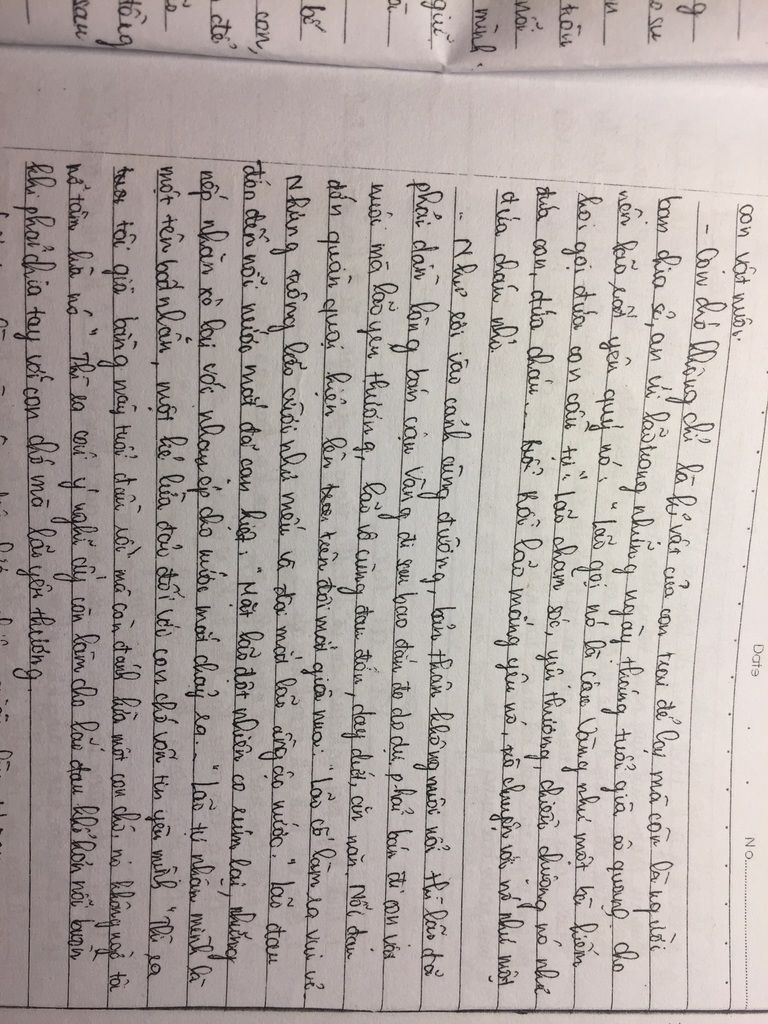 Date
No.
con vật nuôi.
- Con chó không chỉ là kỉ vật của con trai để lại mà còn là người
bạn chia sẻ, an ủi lão trong những ngày tháng tuổi già cô quạnh cho
nên lão rất yêu quý nó. "Lão gọi nó là cậu Vàng như một bà hiếm
hoi gọi đứa con cầu tự", lão chăm sóc, yêu thương, chiều chuộng nó như
đứa con, đứa cháu... rồi lão mắng yêu nó, trò chuyện với nó như một
đứa cháu nhỏ.
- Như rơi vào cảnh cùng đường, bản thân không nuôi nổi thì lão đã
phải đành lòng bán cậu Vàng đi sau bao đắn đo do dự, phải bán đi con vật
nuôi mà lão yêu thương, lão vô cùng đau đớn, day dứt, ăn năn. Nỗi đau
đớn quằn quại hiện lên trên đôi mắt già nua: "Lão cố làm ra vui vẻ
Nhưng trông lão cười như mếu và đôi mắt lão ầng ậc nước". Lão đau
đớn đến nỗi nước mắt đã cạn kiệt: "Mặt lão đột nhiên co rúm lại, những
nếp nhăn xô lại với nhau ép cho nước mắt chảy ra..." Lão tự nhận mình là
một tên bất nhân, một kẻ lừa đảo đối với con chó vốn tin yêu mình "Thì ra
tôi già bằng này tuổi đầu rồi mà còn đánh lừa một con chó, nó không ngờ tôi
nỡ tâm lừa nó" Thì ra cái ý nghĩ ấy còn làm cho lão đau khổ hơn nỗi buồn
khi phải chia tay với con chó mà lão yêu thương.
sau
con,
bố
giữ
mình.
nổi